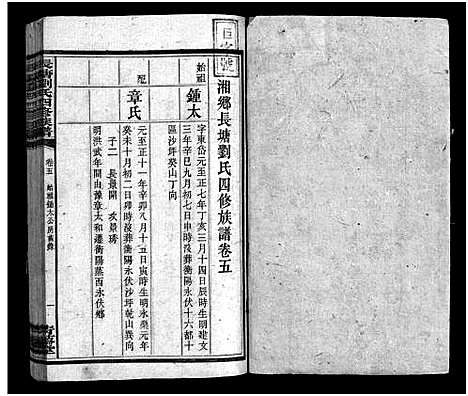 巨字號
湘鄉長塘劉氏四修族譜卷五
始祖
鍾太
字東岱元至正七年丁亥三月十四日辰時生明建文
三年辛巳九月初七日申時沒葬衡陽永伏十六都十
區沙坪癸山丁向
配
章氏
元至正十一年辛卯八月十五日寅時生明永樂元年
癸未十月初二日癸時沒葬衡陽永伏沙坪乾山巽向
子二 長景開 次景琇
明洪武年間由豫章太和遷衡陽蒸西永伏鄉
長塘劉氏四修族譜
卷五
始祖鍾太公房齒錄
一